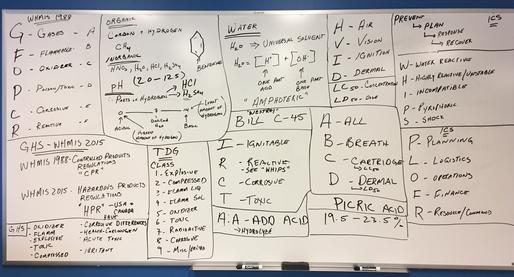 WHMIS 1988
G - GASES - A
F - FLAMMABLE B
O - OXIDIZER - C
D - POISON/TOXIC - D
C - CORROSIVE - E
R - REACTIVE - F
ORGANIC
CARBON + HYDROGEN
CH4
BENZENE
INORGANIC
HNO3, H2O, HCl, H2SO4
(2.0 - 12.5)
pH
HCl
H2SO4
PARTS OF HYDROGEN
0
7
14
ACIDIC
WATER
H2O => UNIVERSAL SOLVENT
H2O = [H+] [OH-]
ONE PART ACID
ONE PART BASE
"AMPHOTERIC"
H - AIR
V - VISION
I - IGNITION
D - DERMAL
LC50 - CONCENTRATION
LD50 - DOSE
PREVENT
ICS
PLAN
RESPONSE
RECOVER
W - WATER REACTIVE
H - HIGHLY REACTIVE/UNSTABLE
I - INCOMPATIBLE
P - PYROPHORIC
S - SHOCK
GHS - WHMIS 2015
WHMIS 1988 - CONTROLLED PRODUCTS REGULATIONS
"CPR"
WHMIS 2015 - HAZARDOUS PRODUCTS REGULATIONS
"HPR"
USA = CANADA
GHS
- OXIDIZER
- FLAM
- EXPLOSIVE
- TOXIC
- COMPRESSED
- CORROSIVE DIFFERENCES
- ACUTE TOXIC
- IRRITANT
TDG
CLASS
1 - EXPLOSIVE
2 - COMPRESSED
3 - FLAM LIQ
4 - FLAM SOL
5 - OXIDIZER
6 - TOXIC
7 - RADIOACTIVE
8 - CORROSIVE
9 - MISC
BILL C-45
I - IGNITABLE
R - REACTIVE
- SEE "WHIPS"
C - CORROSIVE
T - TOXIC
A.A - ADD ACID
HYDROLYZE
A - ALL
B - BREATH
C - CARTRIDGE
LC50
D - DERMAL
LD50
PICRIC ACID
19.5 - 23.5%
ICS
P - PLANNING
L - LOGISTICS
O - OPERATIONS
F - FINANCE
R - RESOURCE/COMMAND